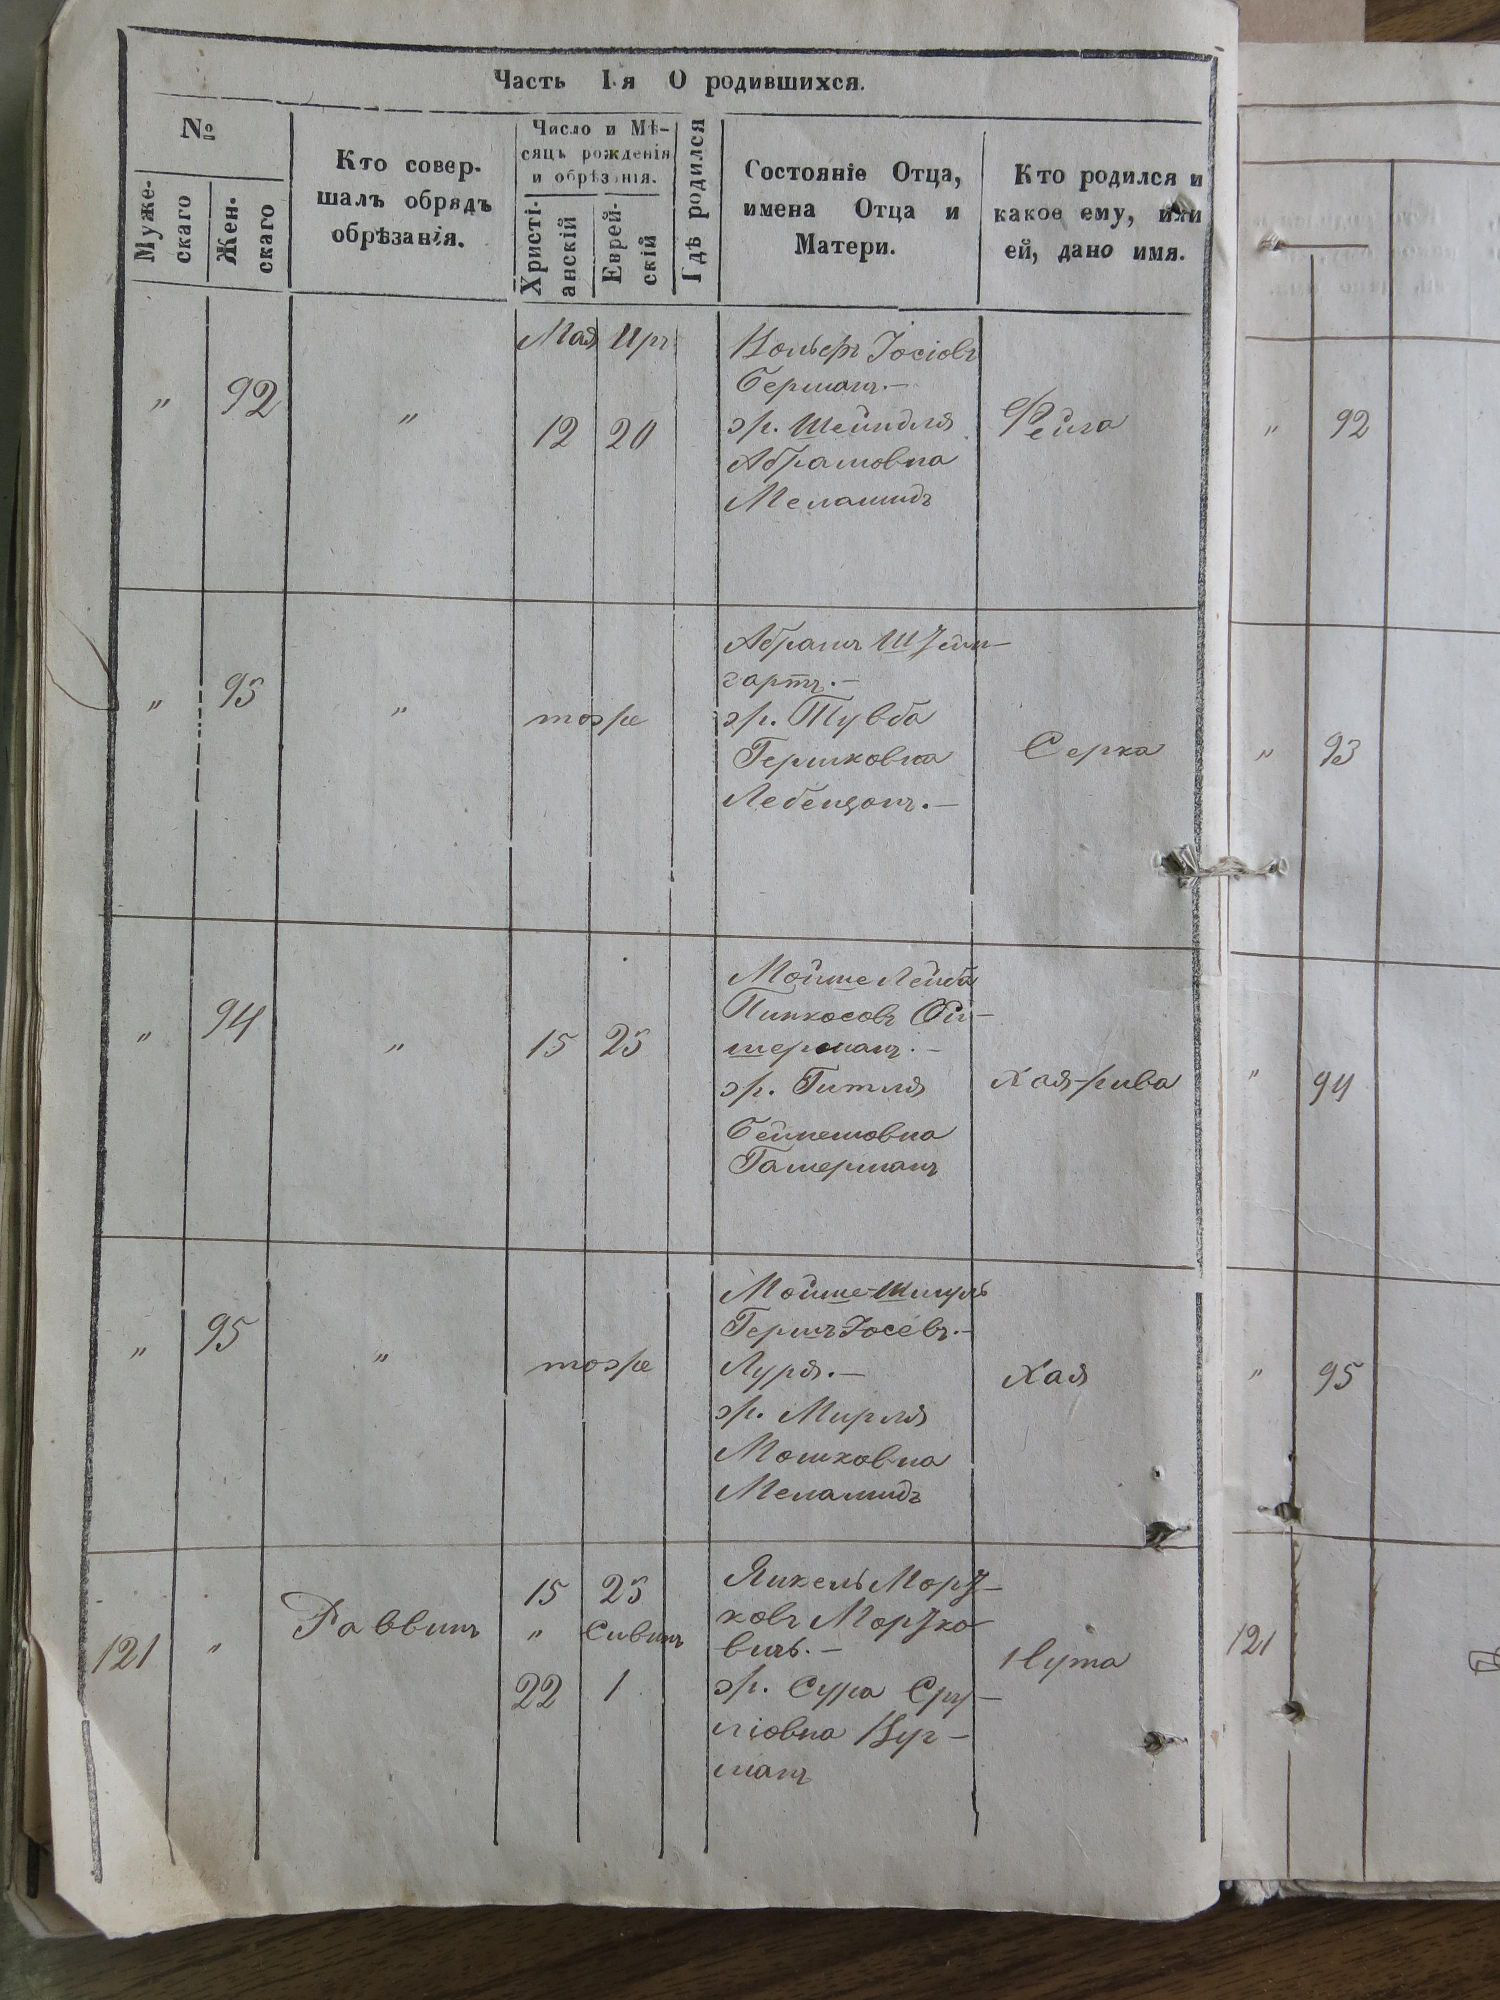 Часть I-я О родившихся.
№
Муже-
скаго
Жен-
скаго
Кто совер-
шалъ обрядъ
обрѣзанія.
Число и Мѣ-
сяцъ рожденія
и обрѣзанія.
Христі-
анскій
Еврей-
скій
Гдѣ родился
Состояніе Отца,
имена Отца и
Матери.
Кто родился и
какое ему, или
ей, дано имя.
Мая Иръ
" 92 " 12 20
Вольфъ Іосіовъ
Берманъ.—
ж. Шейндля
Абрамовна
Меламидъ
Фейга
" 93 " тоже
Абрамъ
гартъ.—
ж. Тувба
Гершковна
Лебензонъ.—
Серка
" 94 " 15 25
Мойше Лейба
Пинхосовъ Фи-
шерманъ.—
ж. Гитля
Бейнешовна
Гамерманъ
Хая-рива
" 95 " тоже
Мойше-Шмуль
Гершъ Іосевъ.—
Луря.—
ж. Мирля
Мошковна
Меламидъ
Хая
121 " Раввинъ
15 25
" Сивинъ
22 1
ЯнкельМорд-
ковъ Мордко-
вичъ.—
ж. Сура Сру-
ліовна Вуг-
манъ
Нута
" 92
" 93
" 94
" 95
121